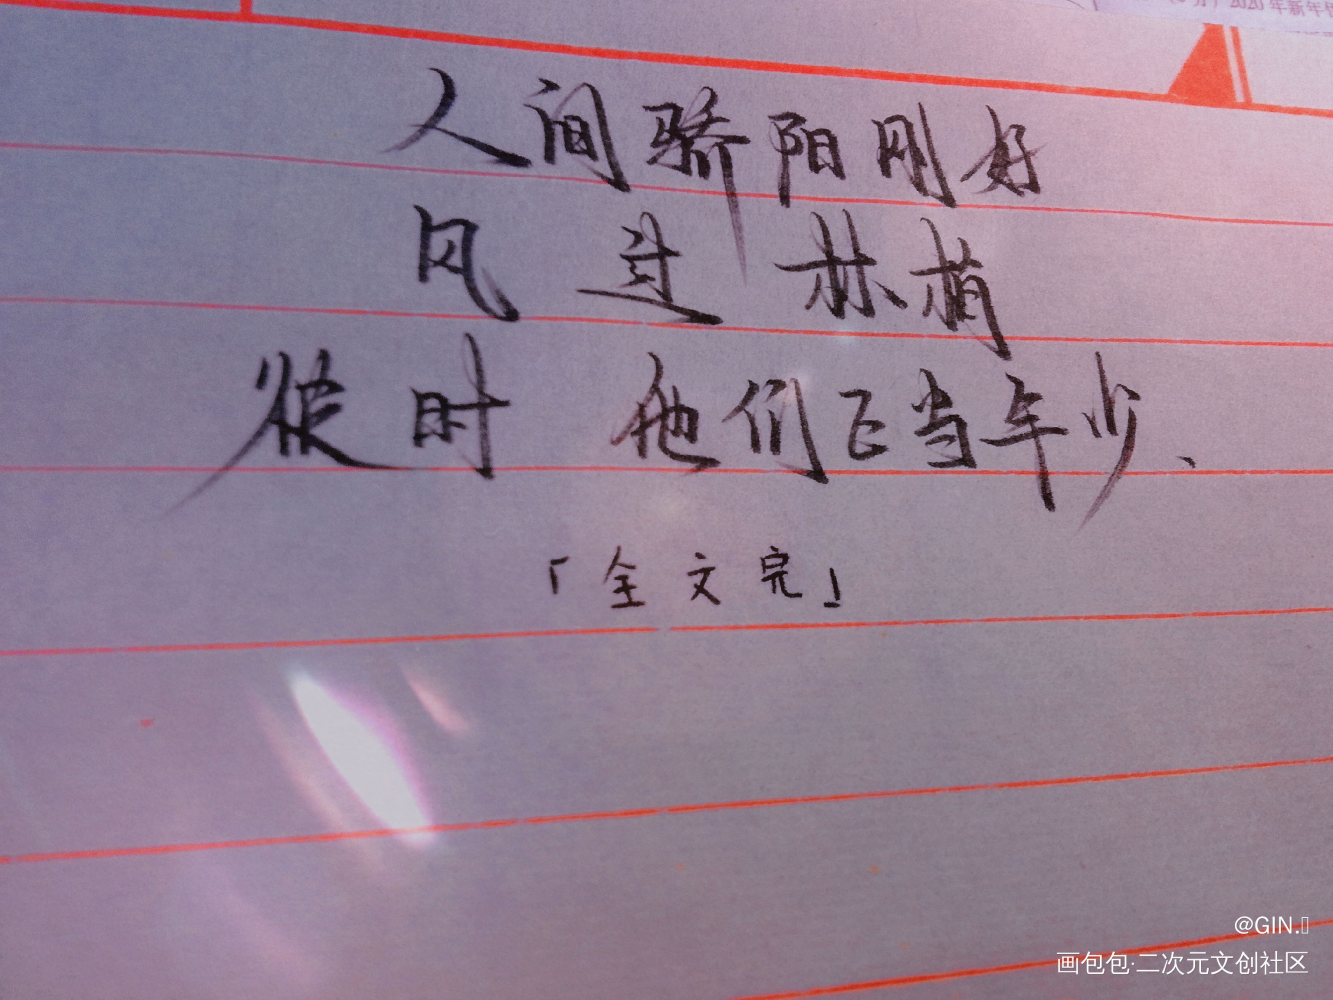 2020年新年
人间骄阳刚好
风过林梢
彼时他们正当年少、
「全文完」
@GIN.
画包包·二次元文创社区